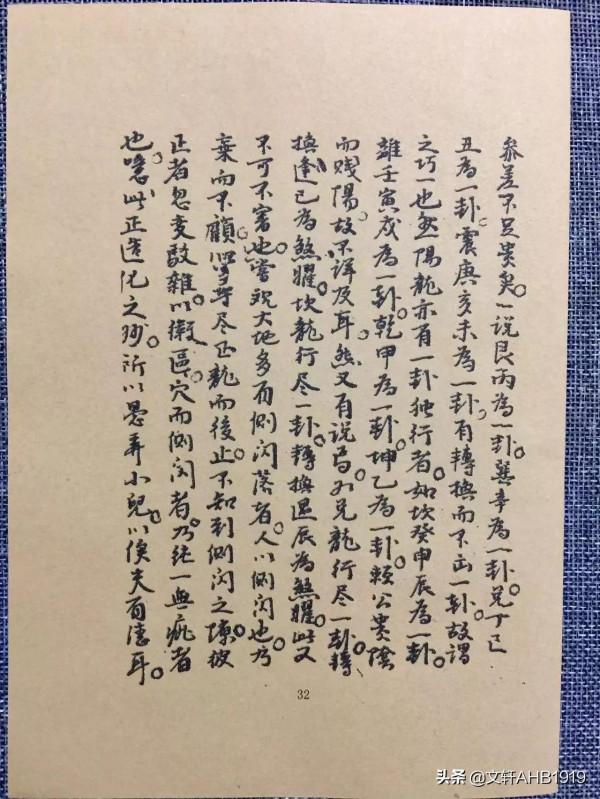 參差不足貴矣。一說艮丙為一卦。巽辛為一卦。兌丁巳
丑為一卦。震庚亥未為一卦。有轉換而不出一卦。故謂
之巧一也。然陽龍亦有一卦独行者。如坎癸申辰為一卦。
離壬寅戌為一卦。乾甲為一卦。坤乙為一卦。賴公貴陰
而賤陽。故不詳及耳。然又有說焉。如兌龍行尽一卦。轉
換逢巳為煞曜。坎龍行尽一卦。轉換遇辰為煞曜。此又
不可不審也。嘗观大地多有側闪落者。人以側闪也。方
棄而不顧。必尋尽正龍而後止。不知到側闪之際。彼
正者忽变駁雜。以撤區。穴而側闪者。乃純一無疵者
也。噫。此正造化之妙。所以愚弄小兒。以俟夫有德耳。
32
头条 @文轩AHB1919